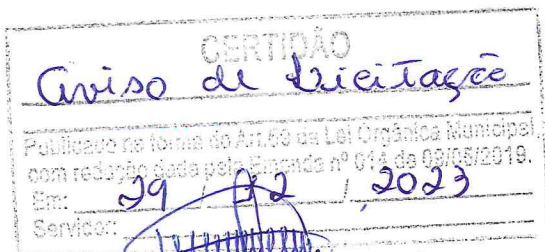 CERTIDÃO
Aviso de Licitação
Publicado na forma do Art.69 da Lei Orgânica Municipal,
com redação dada pela Emenda nº 014 de 09/09/2019.
Em: 29 / 12 / 2023
Servidor: